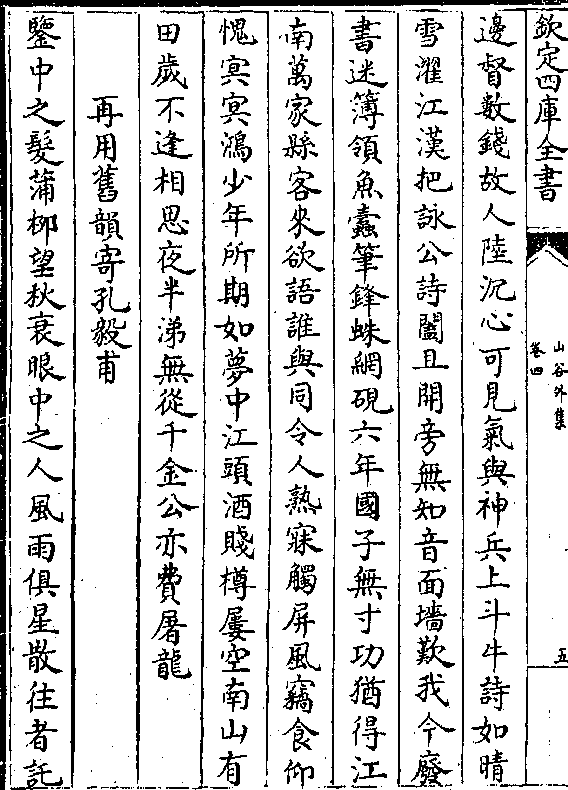 欽定四庫全書
山谷外集
卷四
五
邊督數錢故人陸沉心可見氣與神兵上斗牛詩如晴
雪濯江漢把詠公詩闔且開旁無知音面墻歎我今廢
書迷簿領魚蠧筆鋒蛛網硯六年國子無寸功猶得江
南萬家縣客來欲語誰與同令人熟寐觸屏風竊食仰
愧冥冥鴻少年所期如夢中江頭酒賤樽屢空南山有
田歲不逢相思夜半涕無從千金公亦費屠龍
再用舊韻寄孔毅甫
鑒中之髮蒲柳望秋衰眼中之人風雨俱星散往者託